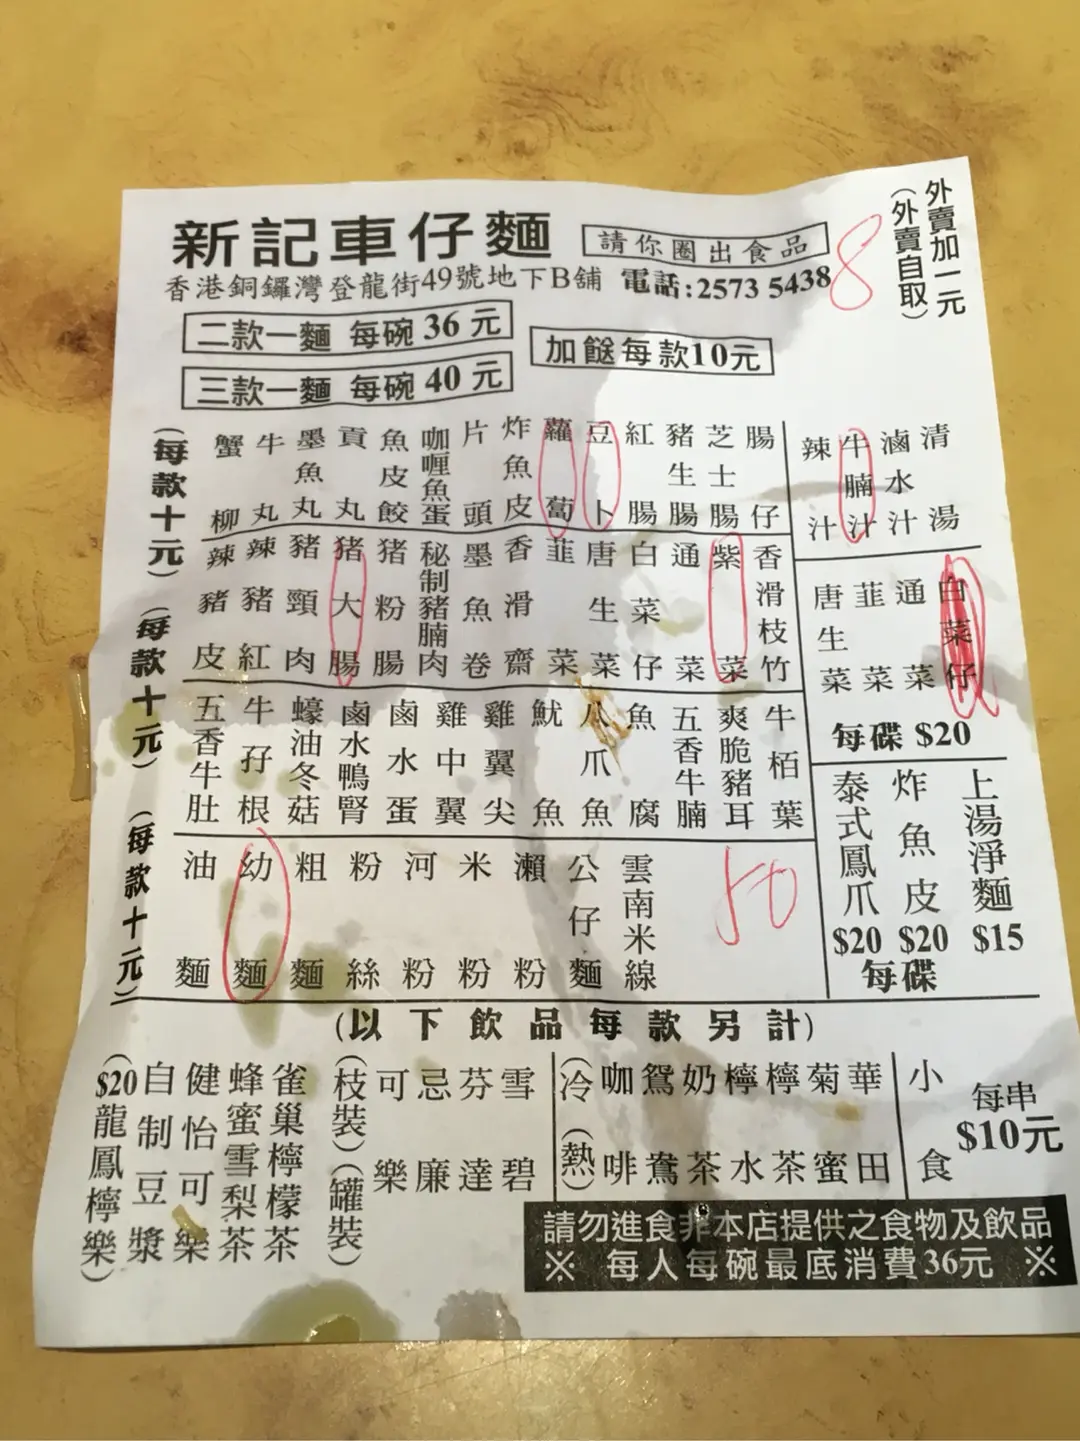 新記車仔麵
請你圈出食品
外賣加一元
(外賣自取)
8
香港銅鑼灣登龍街49號地下B舖 電話:2573 5438
二款一麵 每碗 36 元
三款一麵 每碗 40 元
加餸每款10元
(每款十元)
蟹柳
牛丸
墨魚丸
貢丸
魚皮餃
咖喱魚蛋
片頭
炸魚皮
蘿蔔
豆卜
紅腸
豬生腸
芝士腸
腸仔
(每款十元)
辣豬皮
辣豬紅
豬頸肉
猪大腸
猪粉腸
秘制豬腩肉
墨魚卷
香滑齋
韮菜
唐生菜
白菜仔
通菜
紫菜
香滑枝竹
(每款十元)
五香牛肚
牛孖根
蠔油冬菇
鹵水鴨腎
鹵水蛋
雞中翼
雞翼尖
魷魚
爪魚
魚腐
五香牛腩
爽脆豬耳
牛栢葉
油麵
幼麵
粗麵
粉絲
河粉
米粉
瀨粉
公仔麵
雲南米線
50
辣汁
牛腩汁
滷水汁
清湯
唐生菜
韮菜
通菜
白菜仔
每碟 $20
泰式鳳爪 $20
炸魚皮 $20
每碟
上湯淨麵 $15
(以下飲品每款另計)
($20龍鳳檸樂)
自制豆漿
健怡可樂
蜂蜜雪梨茶
雀巢檸檬茶
(枝裝)(罐裝)
可樂
忌廉
芬達
雪碧
(冷)(熱)
咖啡
鴛鴦
奶茶
檸水
檸茶
菊蜜
華田
小食
每串
$10元
請勿進食非本店提供之食物及飲品
※ 每人每碗最底消費36元 ※